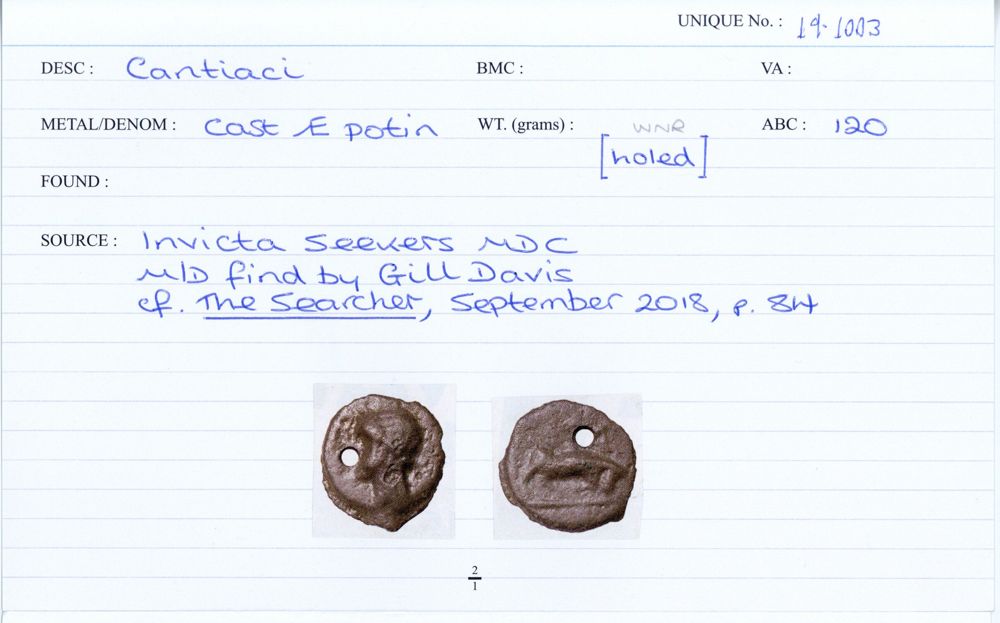 UNIQUE No. : 19-1003
DESC : Cantiaci BMC : VA :
METAL/DENOM : Cast Æ potin WT. (grams) : WNR ABC : 120
[holed]
FOUND :
SOURCE : Invicta Seekers MDC
M/D find by Gill Davis
cf. The Searcher, September 2018, p. 84
2
1